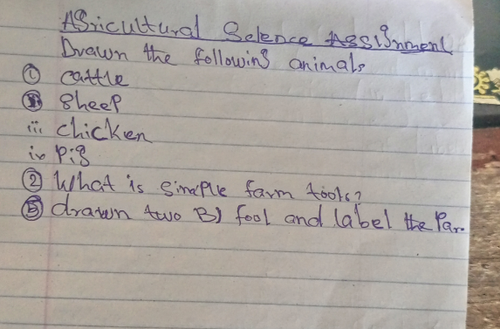 Agricultural Science Assignment
Drawn the following animals
① cattle
ii sheep
iii chicken
iv pig
② What is simple farm tools?
B drawn two B) fool and label the Par.